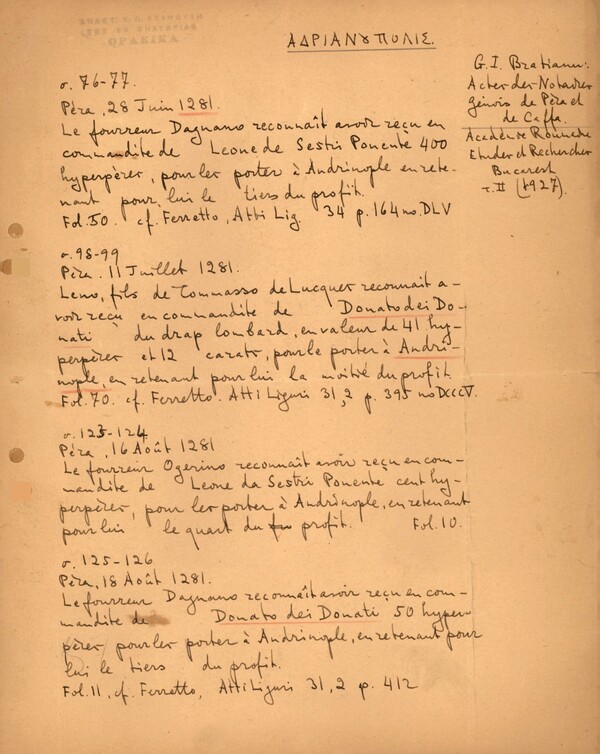 ΘΡΑΚΙΚΑ
ΑΔΡΙΑΝΟΥΠΟΛΙΣ.
G. I. Bratianu:
Actes des Notaires
génois de Péra et
de Caffa.
Académie Roumaine
Etudes et Recherches
Bucarest
τ. II (1927).
σ. 76-77.
Péra, 28 Juin 1281.
Le fourreur Dagnano reconnaît avoir reçu en
commandite de Leone de Sestri Ponente 400
hyperpères, pour les porter à Andrinople en rete-
nant pour lui le tiers du profit.
Fol. 50. cf. Ferretto, Atti Lig. 34 p. 164 no. DLV
σ. 98-99
Péra. 11 Juillet 1281.
Leno, fils de Tommasso de Lucques reconnait a-
voir reçu en commandite de Donato dei Do-
nati du drap lombard, en valeur de 41 hy-
perpères et 12 carats, pour le porter à Andri-
nople, en retenant pour lui la moitié du profit
Fol. 70. cf. Ferretto. Atti Liguri 31,2 p. 395 no DCCCV.
σ. 123-124
Péra, 16 Août 1281
Le fourreur Ogerino reconnaît avoir reçu en com-
mandite de Leone da Sestri Ponente cent hy-
perpères, pour les porter à Andrinople, en retenant
pour lui le quart du profit. Fol. 10.
σ. 125-126
Péra, 18 Août 1281.
Le fourreur Dagnano reconnaît avoir reçu en com-
mandite de Donato dei Donati 50 hyper-
pères, pour les porter à Andrinople, en retenant pour
lui le tiers du profit.
Fol. 11, cf. Ferretto, Atti Liguri 31,2 p. 412